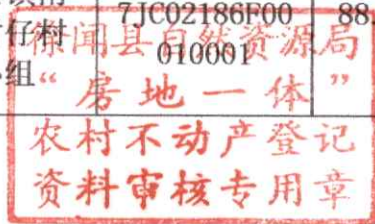 7JC02186F00
010001
88.
仔村
组
徐闻县自然资源局
“房地一体”
农村不动产登记
资料审核专用章